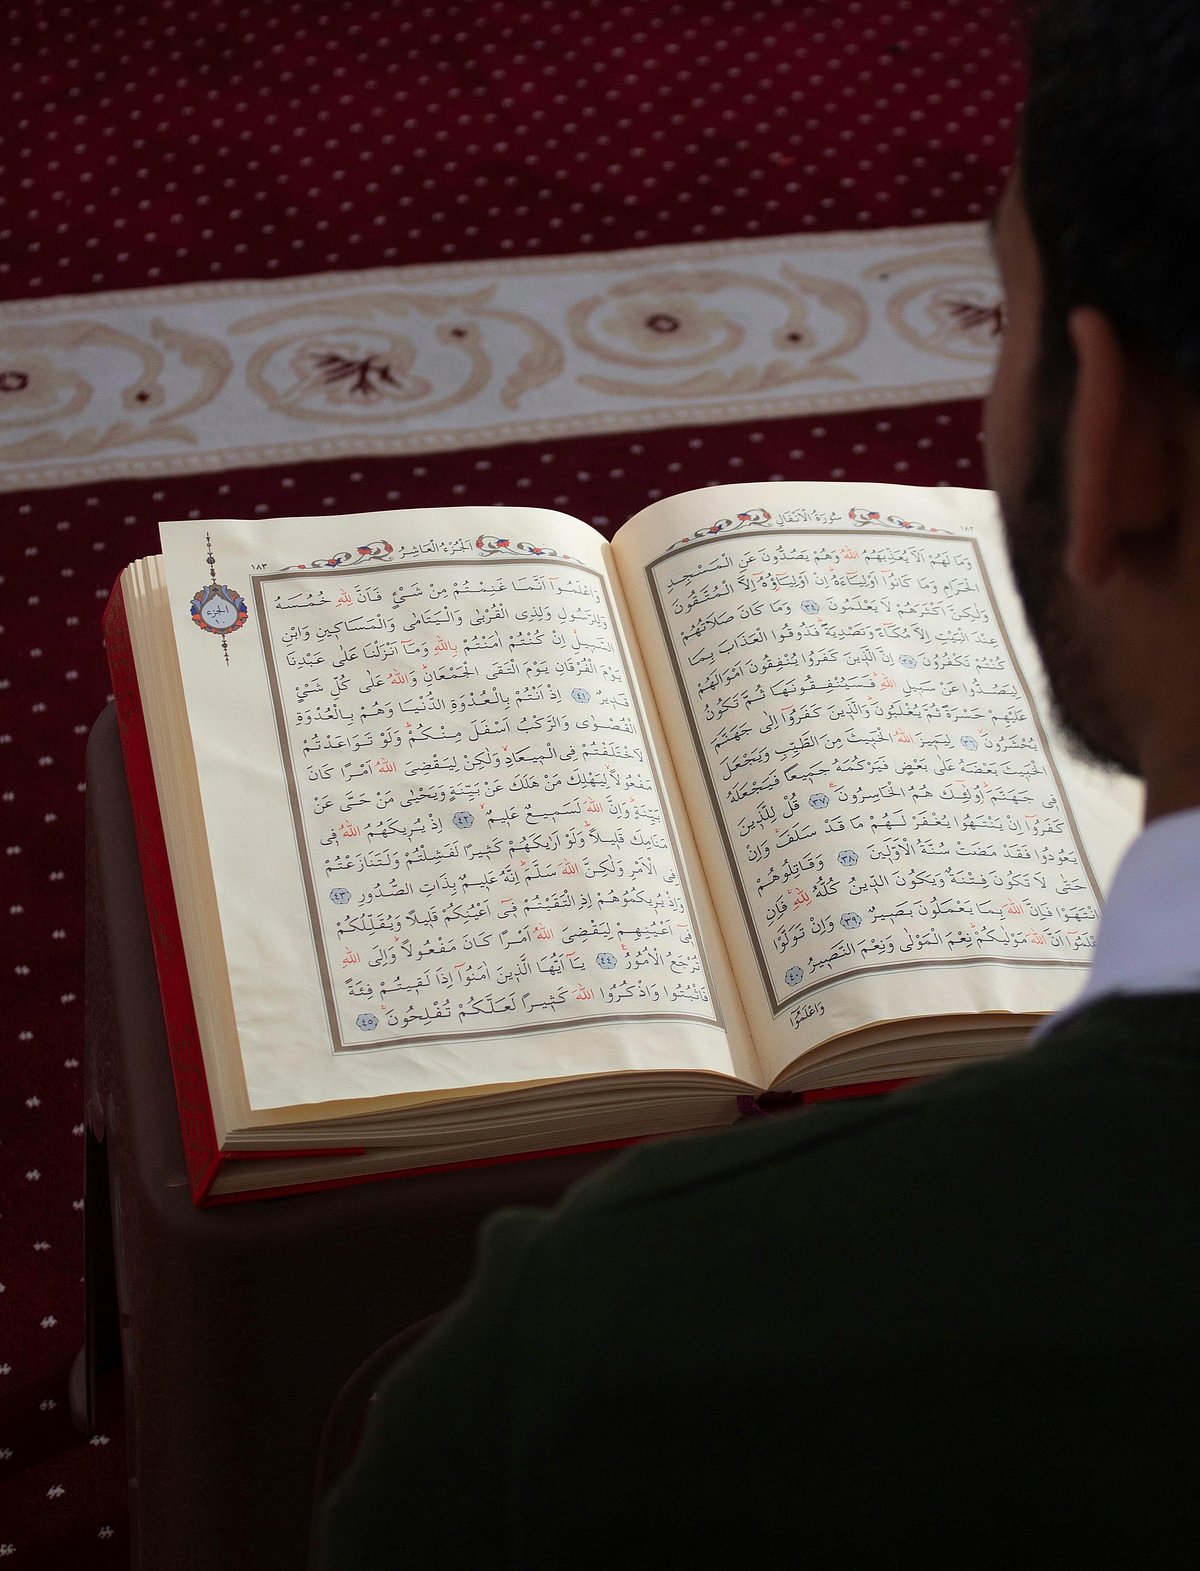 سُورَةُ الْاَنْفَالِ ١٨٢
وَمَا لَهُمْ اَلَّا يُعَذِّبَهُمُ اللّٰهُ وَهُمْ يَصُدُّونَ عَنِ الْمَسْجِدِ
الْحَرَامِ وَمَا كَانُٓوا اَوْلِيَٓاءَهُۜ اِنْ اَوْلِيَٓاؤُهُٓ اِلَّا الْمُتَّقُونَ
وَلٰكِنَّ اَكْثَرَهُمْ لَا يَعْلَمُونَ ٣٤ وَمَا كَانَ صَلَاتُهُمْ
عِنْدَ الْبَيْتِ اِلَّا مُكَٓاءً وَتَصْدِيَةًۜ فَذُوقُوا الْعَذَابَ بِمَا
كُنْتُمْ تَكْفُرُونَ ٣٥ اِنَّ الَّذِينَ كَفَرُوا يُنْفِقُونَ اَمْوَالَهُمْ
لِيَصُدُّوا عَنْ سَبِيلِ اللّٰهِۜ فَسَيُنْفِقُونَهَا ثُمَّ تَكُونُ
عَلَيْهِمْ حَسْرَةً ثُمَّ يُغْلَبُونَۜ وَالَّذِينَ كَفَرُٓوا اِلٰى جَهَنَّمَ
يُحْشَرُونَ ٣٦ لِيَمِيزَ اللّٰهُ الْخَبِيثَ مِنَ الطَّيِّبِ وَيَجْعَلَ
الْخَبِيثَ بَعْضَهُ عَلٰى بَعْضٍ فَيَرْكُمَهُ جَمِيعًا فَيَجْعَلَهُ
فِي جَهَنَّمَۜ اُولٰٓئِكَ هُمُ الْخَاسِرُونَ ٣٧ قُلْ لِلَّذِينَ
كَفَرُٓوا اِنْ يَنْتَهُوا يُغْفَرْ لَهُمْ مَا قَدْ سَلَفَۚ وَاِنْ
يَعُودُوا فَقَدْ مَضَتْ سُنَّةُ الْاَوَّلِينَ ٣٨ وَقَاتِلُوهُمْ
حَتّٰى لَا تَكُونَ فِتْنَةٌ وَيَكُونَ الدِّينُ كُلُّهُ لِلّٰهِۚ فَاِنِ
انْتَهَوْا فَاِنَّ اللّٰهَ بِمَا يَعْمَلُونَ بَصِيرٌ ٣٩ وَاِنْ تَوَلَّوْا
فَاعْلَمُٓوا اَنَّ اللّٰهَ مَوْلٰيكُمْۜ نِعْمَ الْمَوْلٰى وَنِعْمَ النَّصِيرُ ٤٠
وَاعْلَمُٓوا
١٨٣ اَلْجُزْءُ الْعَاشِرُ
الجزء ١٠
وَاعْلَمُٓوا اَنَّمَا غَنِمْتُمْ مِنْ شَيْءٍ فَاَنَّ لِلّٰهِ خُمُسَهُ
وَلِلرَّسُولِ وَلِذِي الْقُرْبٰى وَالْيَتَامٰى وَالْمَسَاكِينِ وَابْنِ
السَّبِيلِۙ اِنْ كُنْتُمْ اٰمَنْتُمْ بِاللّٰهِ وَمَٓا اَنْزَلْنَا عَلٰى عَبْدِنَا
يَوْمَ الْفُرْقَانِ يَوْمَ الْتَقَى الْجَمْعَانِۜ وَاللّٰهُ عَلٰى كُلِّ شَيْءٍ
قَدِيرٌ ٤١ اِذْ اَنْتُمْ بِالْعُدْوَةِ الدُّنْيَا وَهُمْ بِالْعُدْوَةِ
الْقُصْوٰى وَالرَّكْبُ اَسْفَلَ مِنْكُمْۜ وَلَوْ تَوَاعَدْتُمْ
لَاخْتَلَفْتُمْ فِي الْمِيعَادِۙ وَلٰكِنْ لِيَقْضِيَ اللّٰهُ اَمْرًا كَانَ
مَفْعُولًاۙ لِيَهْلِكَ مَنْ هَلَكَ عَنْ بَيِّنَةٍ وَيَحْيٰى مَنْ حَيَّ عَنْ
بَيِّنَةٍۜ وَاِنَّ اللّٰهَ لَسَمِيعٌ عَلِيمٌۙ ٤٢ اِذْ يُرِيكَهُمُ اللّٰهُ فِي
مَنَامِكَ قَلِيلًاۜ وَلَوْ اَرٰيكَهُمْ كَثِيرًا لَفَشِلْتُمْ وَلَتَنَازَعْتُمْ
فِي الْاَمْرِ وَلٰكِنَّ اللّٰهَ سَلَّمَۜ اِنَّهُ عَلِيمٌ بِذَاتِ الصُّدُورِ ٤٣
وَاِذْ يُرِيكُمُوهُمْ اِذِ الْتَقَيْتُمْ فِٓي اَعْيُنِكُمْ قَلِيلًا وَيُقَلِّلُكُمْ
فِٓي اَعْيُنِهِمْ لِيَقْضِيَ اللّٰهُ اَمْرًا كَانَ مَفْعُولًاۜ وَاِلَى اللّٰهِ
تُرْجَعُ الْاُمُورُ ٤٤ يَٓا اَيُّهَا الَّذِينَ اٰمَنُٓوا اِذَا لَقِيتُمْ فِئَةً
فَاثْبُتُوا وَاذْكُرُوا اللّٰهَ كَثِيرًا لَعَلَّكُمْ تُفْلِحُونَۚ ٤٥